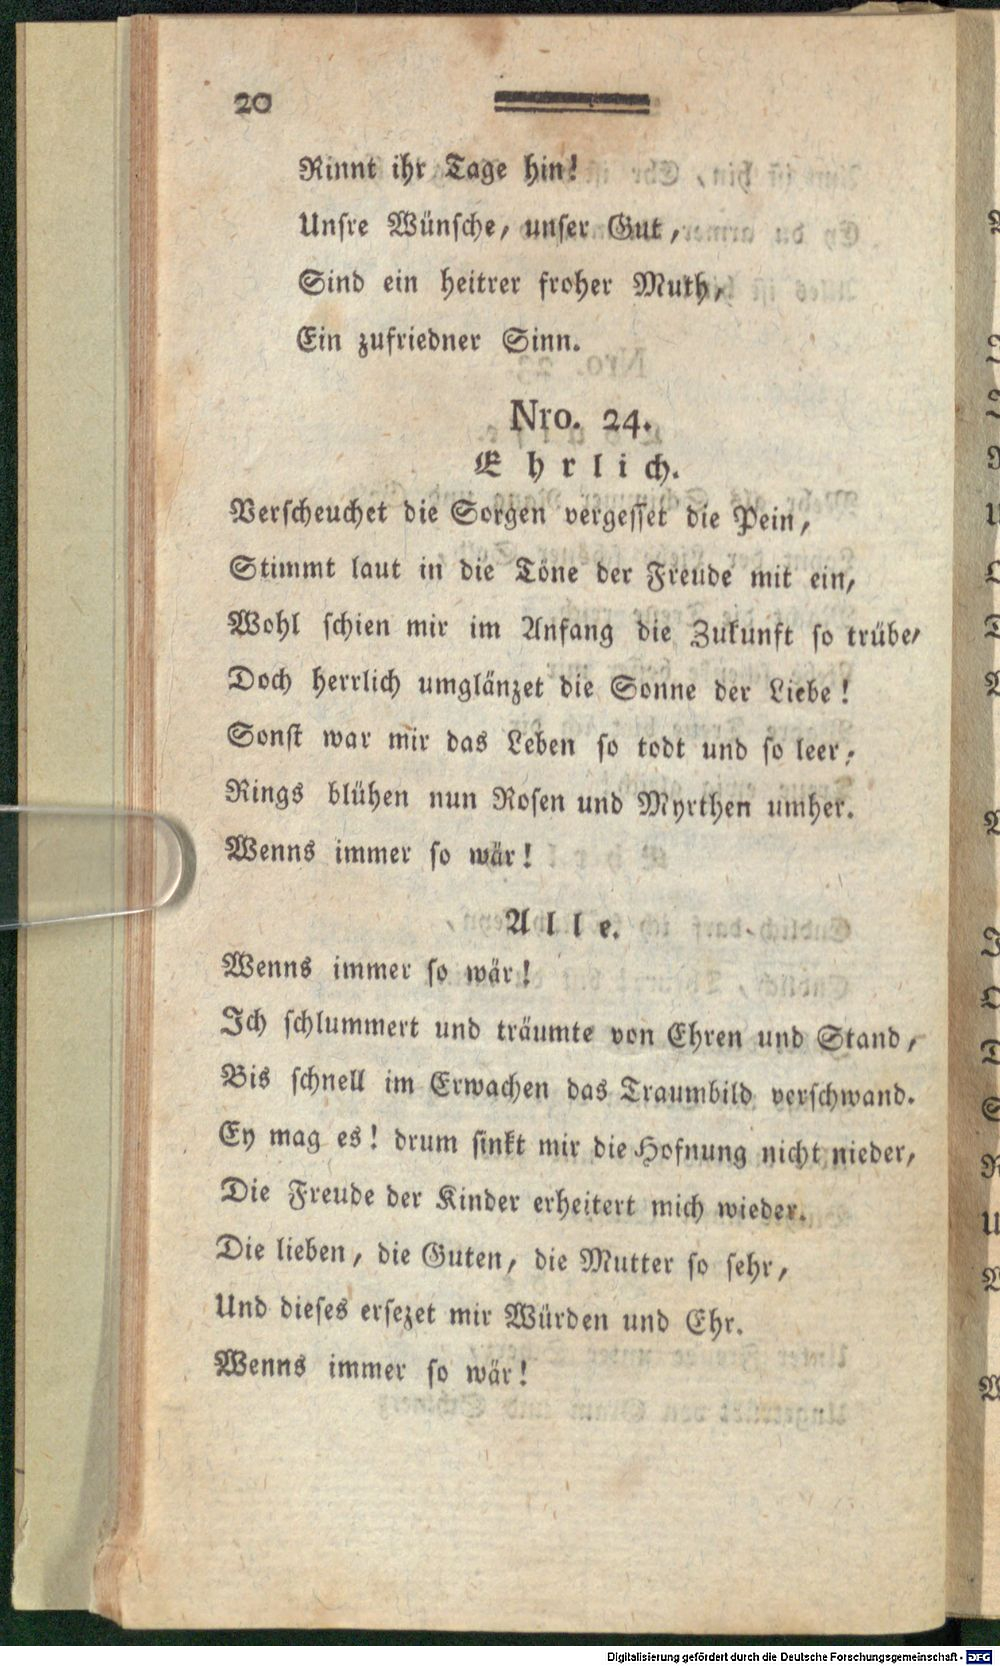 20
Rinnt ihr Tage hin!
Unsre Wünsche, unser Gut,
Sind ein heitrer froher Muth,
Ein zufriedner Sinn.
Nro. 24.
Ehrlich.
Verscheuchet die Sorgen vergesset die Pein,
Stimmt laut in die Töne der Freude mit ein,
Wohl schien mir im Anfang die Zukunft so trübe,
Doch herrlich umglänzet die Sonne der Liebe!
Sonst war mir das Leben so todt und so leer;
Rings blühen nun Rosen und Myrthen umher.
Wenns immer so wär!
Alle.
Wenns immer so wär!
Ich schlummert und träumte von Ehren und Stand,
Bis schnell im Erwachen das Traumbild verschwand.
Ey mag es! drum sinkt mir die Hofnung nicht nieder,
Die Freude der Kinder erheitert mich wieder.
Die lieben, die Guten, die Mutter so sehr,
Und dieses ersezet mir Würden und Ehr.
Wenns immer so wär!
Digitalisierung gefördert durch die Deutsche Forschungsgemeinschaft - DFG